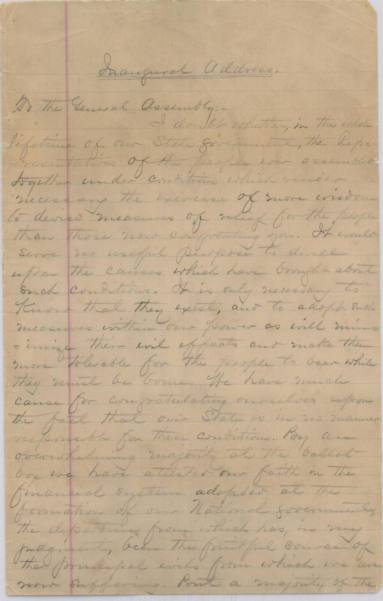 Inaugural Address.
To the General Assembly:-
I doubt whether, in the whole
lifetime of our State government, the Repre-
sentatives of the people ever assembled
together under conditions which render
necessary the exercise of more wisdom
to devise measures of relief for the people
than those now confronting you. It would
serve no useful purpose to dwell
upon the causes which have brought about
such conditions. It is only necessary to
know that they exist, and to adopt such
measures within our power as will mini
- imize their evil effects and make them
more tolerable for the people to bear while
they must be borne. We have much
cause for congratulating ourselves upon
the fact that our State is in no manner
responsible for these conditions. By an
overwhelming majority at the ballot
box we have attested our faith in the
financial system adopted at the
formation of our National government,
the departure from which has, in my
judgment, been the fruitful source of
the principal evils from which we are
now suffering. But a majority of the